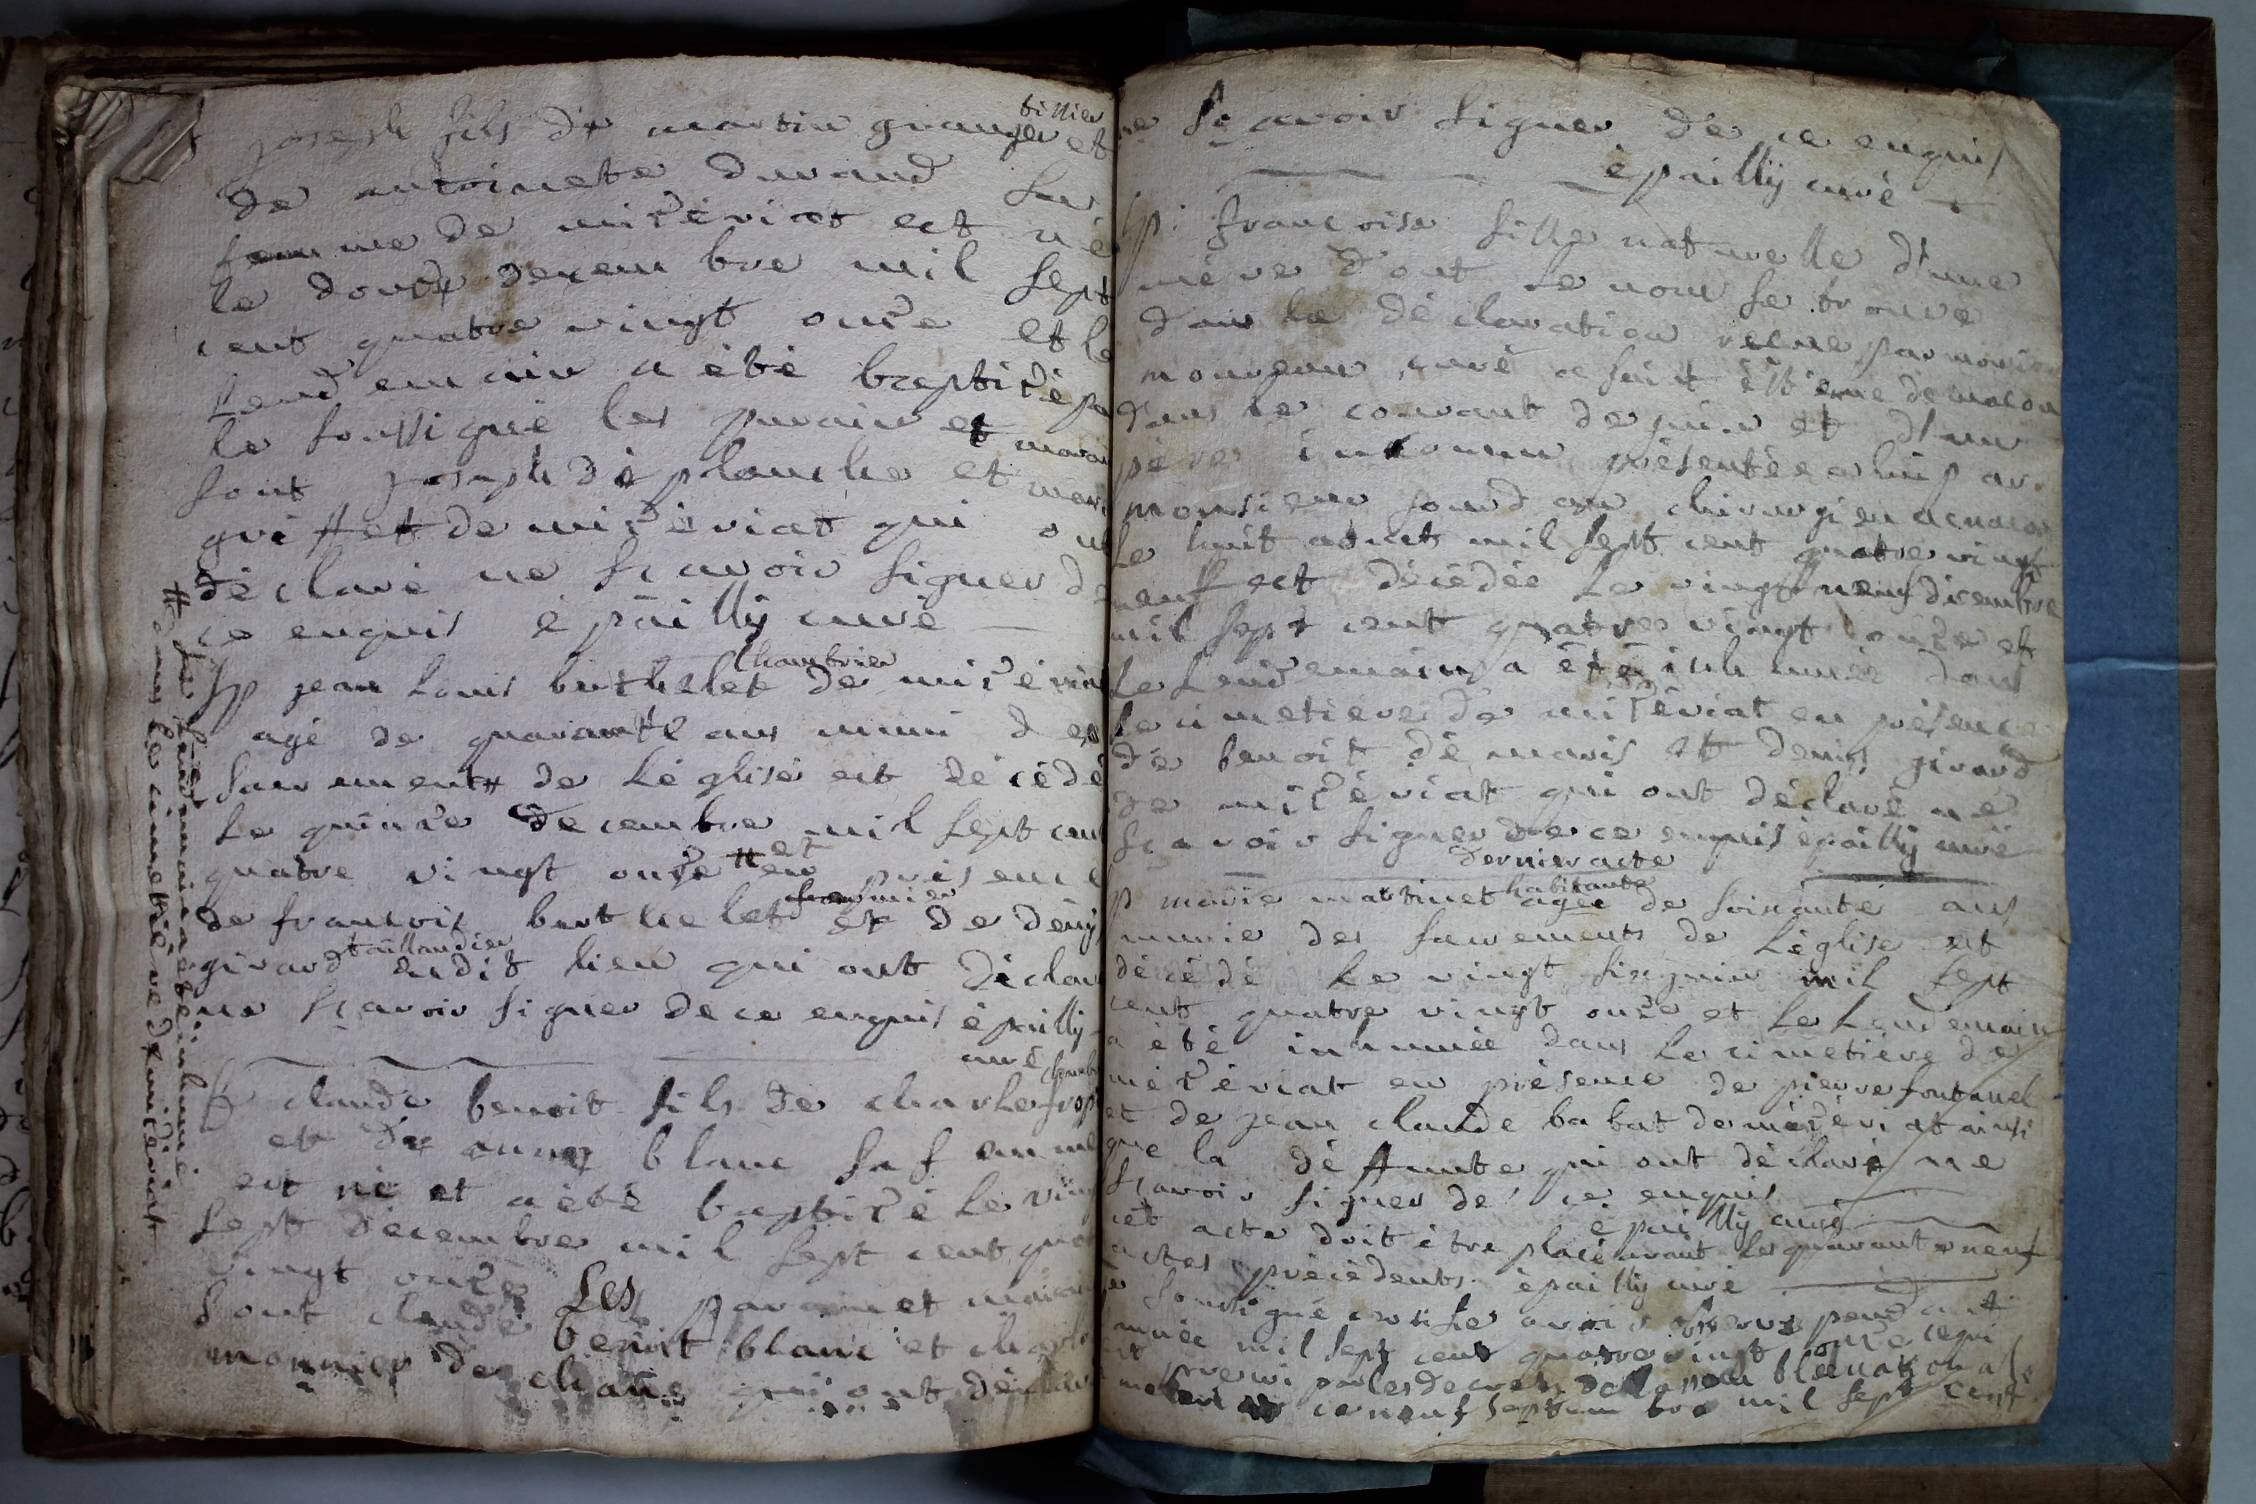 joseph fils de martin granger tissier et
de antoinete durand sa
femme de misériat est né
le douze decembre mil sept
cent quatre vingt onze et le
lendemain a été baptisé pa
le soussigné les parain et marai
sont joseph déplanche et mar
de miseriat qui ont
déclaré ne scavoir signer de
ce enquis épailly curé
jean Louis berthelet chambrier de miséria
agé de quarante ans muni des
sacrements de Léglise est décédé
Le quinze decembre mil sept cen
quatre vingt onze # et en présence
de francois berthelet et de deny
girard taillandier dudit lieu qui ont déclar
ne scavoir signer de ce enquis épailly
curé
# Le Lendemain a été inhumé
dans le cimetière de miseriat
claude benoit fils de charle
et de anne blanc sa femme
est né et a été baptizé le ving
sept décembre mil sept cent quat
vingt onze Les parain et marai
sont claude benoit blanc et charlo
monnier de chane qui ont déclar
ne scavoir signer de ce enquis
épailly curé
francoise fille naturelle d'une
mère dont le nom se trouve
dans la déclaration recue par monsieu
monsieur curé a saint étienne de macon
dans le courant de juin et d'un
père inconnu présentée a lui par
monsieur chirurgien a macon
Le huit aout mil sept cent quatre vingt
neuf est décédée Le vingt neuf dicembre
mil sept cent quatre vingt onze et
Le Lendemain a été inhumée dans
Le cimetière de miseriat en présence
de benoit démaris et denis girard
de misériat qui ont déclaré ne
scavoir signer de ce enquis épailly curé
dernier acte
marie martinet habitante agée de soixante ans
munie des sacrements de Léglise est
décédé Le vingt six juin mil sept
cent quatre vingt onze et Le Lendemain
a été inhumée dans Le cimetière de
misériat en présence de pierre fontanel
et de jean claude babat de miseriat ainsi
que la déffunte qui ont déclaré ne
scavoir signer de ce enquis
épailly curé
cet acte doit être placé avant les quarante neuf
actes précédents épailly curé
Le soussigné certifie avoir observé pendant
année mil sept cent quatre vingt onze ce qui
est prescri par les decrets de la nationale
ce neuf septembre mil sept cent